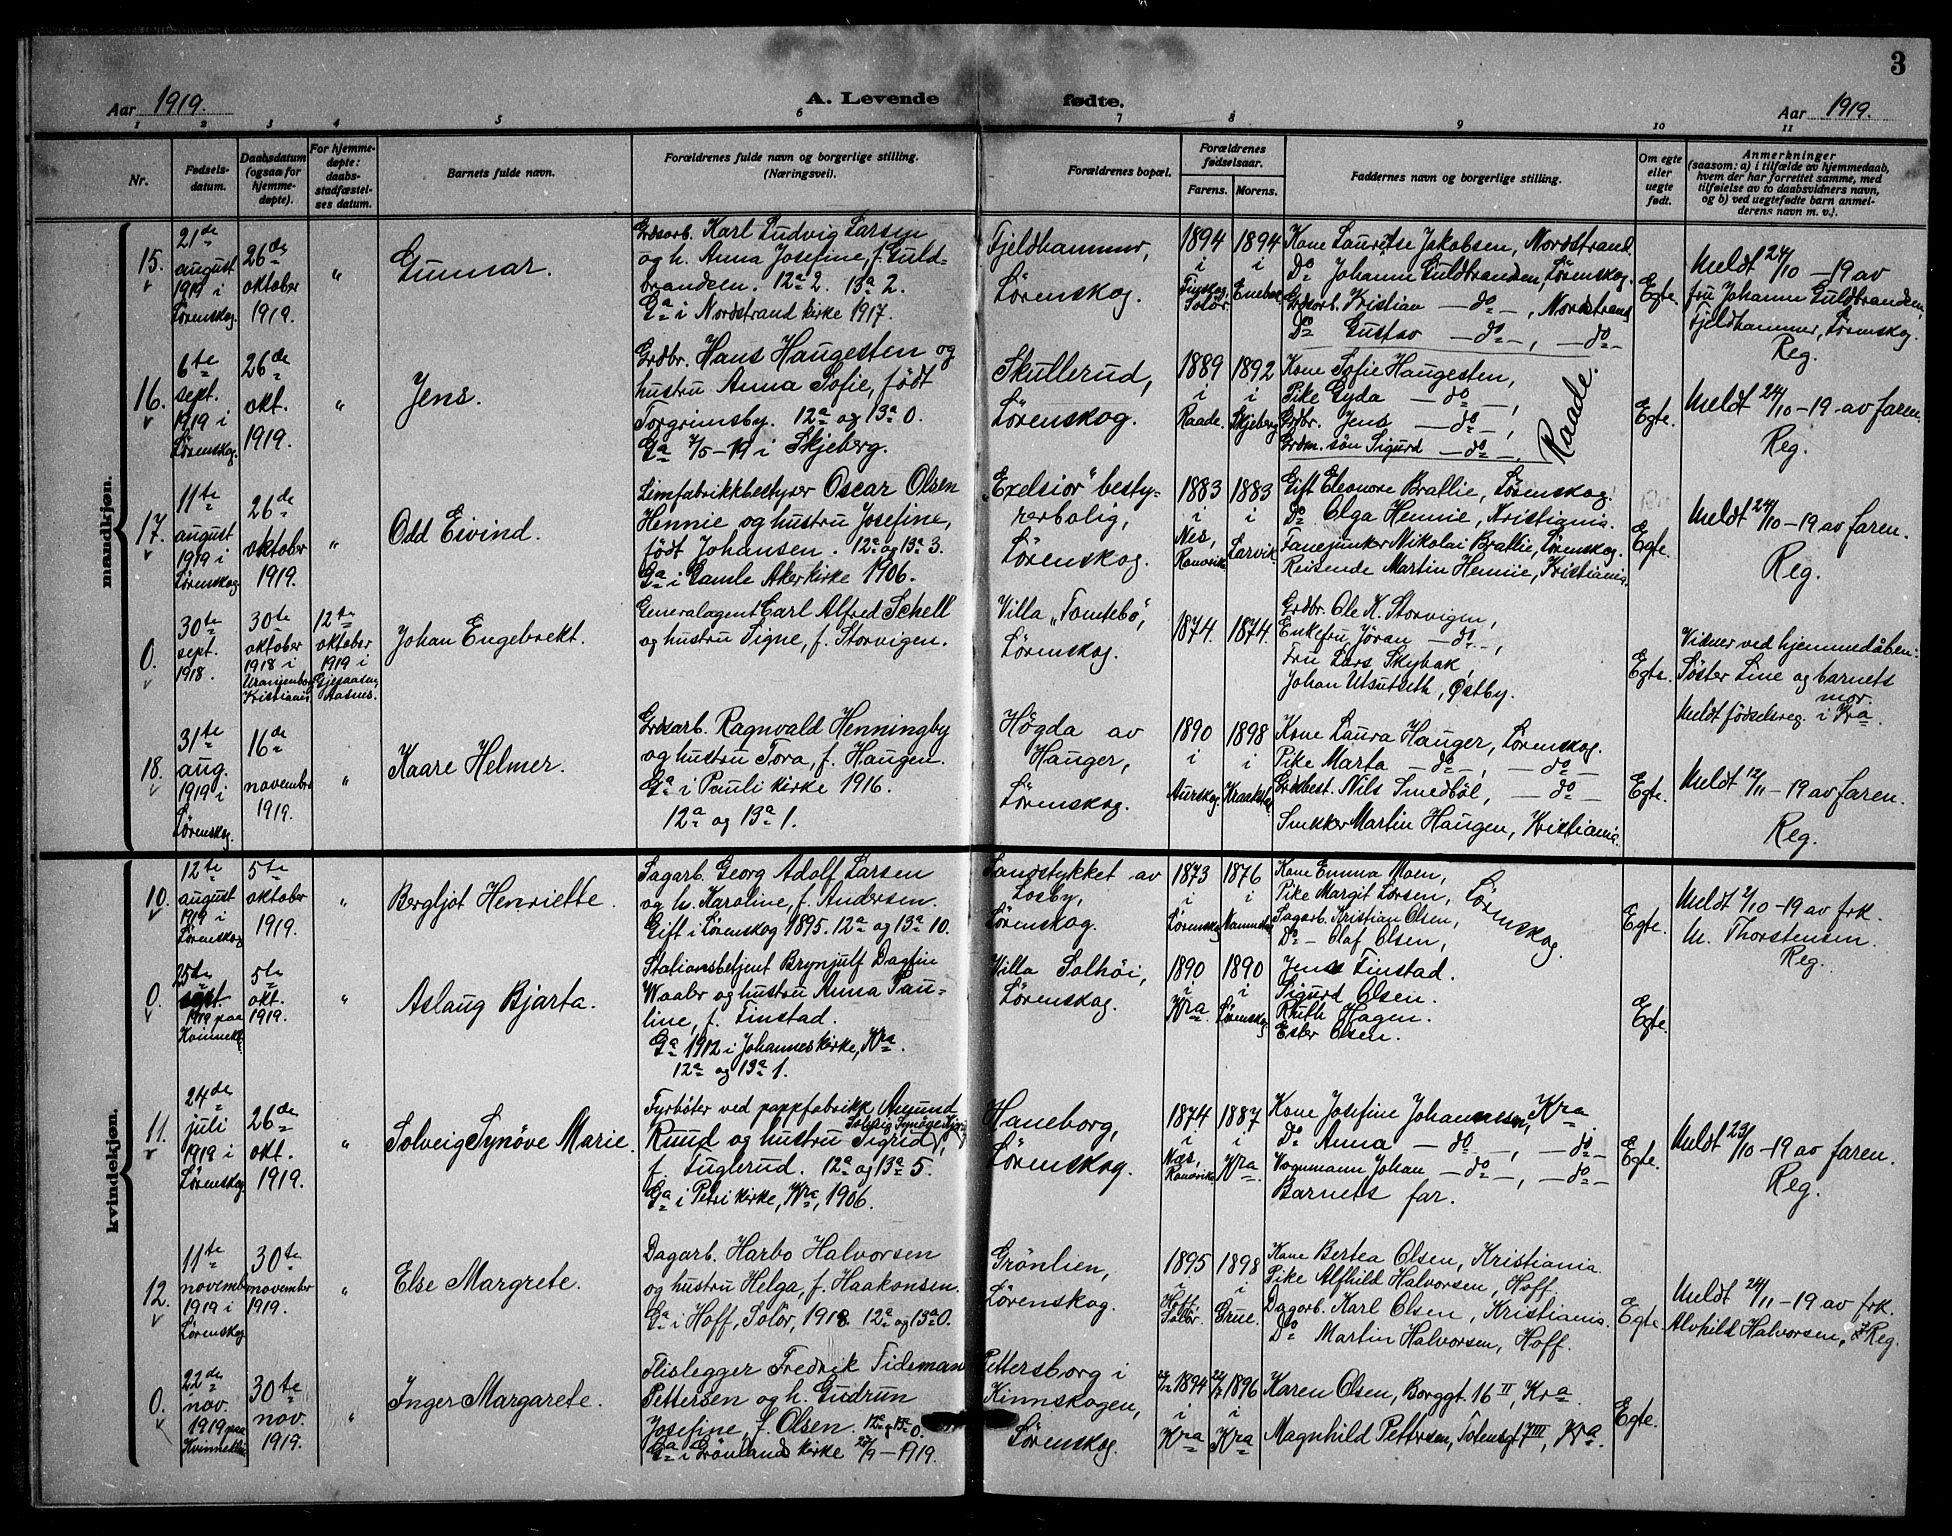 3
Aar 1919.
A. Levende fødte.
Aar 1919.
1 2 3 4 5 6 7 8 9 10 11
Nr.
Fødsels-
datum.
Daabsdatum
(ogsaa for
hjemme-
døpte).
For hjemme-
døpte:
daabs-
stadfæstel-
ses datum.
Barnets fulde navn.
Forældrenes fulde navn og borgerlige stilling.
(Næringsvei).
Forældrenes bopæl.
Forældrenes
fødselsaar.
Farens. Morens.
Faddernes navn og borgerlige stilling.
Om egte
eller
uegte
født.
Anmerkninger
(saasom: a) i tilfælde av hjemmedaab,
hvem der har forrettet samme, med
tilføielse av to daabsvidners navn,
og b) ved uegtefødte barn anmel-
derens navn m. v.).
mandkjøn.
15.
21de
august
1919 i
Lørenskog.
26de
oktober
1919.
"
Gunnar.
Grdsarb. Karl Ludvig Larsen
og h. Anna Josefine, f. Guld-
brandsen. 12a 2. 13a 2.
Ga i Nordstrand kirke 1917.
Fjeldhammer,
Lørenskog.
1894
i
Finskog,
Solør.
1894
i
Enebak.
Kone Lauretse Jakobsen, Nordstrand.
Do Johanne Guldbrandsen, Lørenskog.
Grdsarb. Kristian — do —, Nordstrand
Do Gustav — do —, — do —
Egte.
Meldt 24/10 – 19 av
fru Johanne Guldbrandsen,
Fjeldhammer, Lørenskog.
Reg.
16.
6te
sept.
1919 i
Lørenskog.
26de
okt.
1919.
"
Jens.
Grdbr. Hans Haugesten og
hustru Anna Sofie, født
Torgrimsby. 12a og 13a 0.
Ga 7/5 – 19 i Skjeberg.
Skullerud,
Lørenskog.
1889
i
Raade.
1892
i
Skjeberg
Kone Sofie Haugesten,
Pike Gyda — do —,
Grdbr. Jens — do —,
Grdm. søn Sigurd — do —.
Raade.
Egte.
Meldt 24/10 – 19 av faren.
Reg.
17.
11te
august
1919 i
Lørenskog
26de
oktober
1919.
"
Odd Eivind.
Limfabrikkbestyrer Oscar Olsen
Hennie og hustru Josefine,
født Johansen. 12a og 13a 3.
Ga i Gamle Aker kirke 1906.
„Exelsior" besty-
rerbolig,
Lørenskog.
1883
i
Nes,
Romerike
1883
i
Larvik.
Gift Eleonore Bratlie, Lørenskog.
Do Olga Hennie, Kristiania.
Fanejunker Nikolai Bratlie, Lørenskog.
Reisende Martin Hennie, Kristiania.
Egte.
Meldt 24/10 – 19 av faren.
Reg.
0.
30te
sept.
1918.
30te
oktober
1918 i
Uranienborg
Kristiania.
12te
oktober
1919 i
Gjesaasen,
Aasnes.
Johan Engebrekt.
Generalagent Carl Alfred Schell
og hustru Signe, f. Storvigen.
Villa „Tomtebo",
Lørenskog.
1874.
1874.
Grdbr. Ole K. Storvigen,
Enkefru Jöran — do —,
Fru Lars Skybak
Johan Utsutseth, Østby.
Egte.
Vidner ved hjemmedåben:
Søster Line og barnets
mor.
Meldt fødselsreg. i Kra.
18.
31te
aug.
1919 i
Lørenskog.
16de
november
1919.
"
Kaare Helmer.
Grdsarb. Ragnvald Henningby
og hustru Tora, f. Haugen.
Ga i Pauli kirke 1916.
12a og 13a 1.
Högda av
Hauger,
Lørenskog.
1890
i
Aurskog
1898
i
Kraakstad.
Kone Laura Hauger, Lørenskog.
Pike Marta — do —, — do —
Grdbest. Nils Smedböl, — do —
Snekker Martin Haugen, Kristiania.
Egte.
Meldt 12/11 – 19 av faren.
Reg.
kvindekjøn.
10.
12te
august
1919 i
Lørenskog
5te
oktober
1919.
"
Bergljot Henriette.
Sagarb. Georg Adolf Larsen
og h. Karoline, f. Andersen.
Gift i Lørenskog 1895. 12a og 13a 10.
Sandstykket av
Losby,
Lørenskog.
1873
i
Lørenskog
1876
i
Kone Emma Moen,
Pike Margit Larsen,
Sagarb. Kristian Olsen,
Do – Olaf Olsen,
Lørenskog.
Egte.
Meldt 2/10 – 19 av frk.
M. Thorstensen.
Reg.
0.
25te
sept.
1919 paa
Kvinnekl.
5te
okt.
1919.
"
Aslaug Bjarta.
Stationsbetjent Brynjulf Dagfin
Waaler og hustru Anna Pau-
line, f. Finstad.
Ga 1912 i Johannes kirke, Kra.
12a og 13a 1.
Villa Solhöi,
Lørenskog.
1890
i
Kra.
1890
i
Lørenskog
Jens Finstad.
Sigurd Olsen.
Rhuth Hagen.
Ester Olsen.
Egte.
11.
24de
juli
1919 i
Lørenskog
26de
okt.
1919.
"
Solveig Synöve Marie.
Fyrböter ved pappfabrikk Amund
Ruud og hustru Sigrid,
f. Fuglerud. 12a og 13a 5.
Ga i Petri kirke, Kra, 1906.
Haneborg,
Lørenskog.
1874
i
Næs,
Romerike
1887
i
Kra.
Kone Josefine Johannesen, Kra.
Do Anna — do —, — do —
Vognmann Johan — do —, — do —
Barnets far.
Egte.
Meldt 23/10 – 19 av faren.
Reg.
12.
11te
november
1919 i
Lørenskog
30te
november
1919.
"
Else Margrete.
Dagarb. Harbo Halvorsen
og hustru Helga, f. Haakonsen.
Ga i Hoff, Solör, 1918. 12a og 13a 0.
Grönlien,
Lørenskog.
1895
i
Hoff,
Solör.
1898
i
Grue.
Kone Bertea Olsen, Kristiania.
Pike Alfhild Halvorsen, Hoff.
Dagarb. Karl Olsen, Kristiania.
Do Martin Halvorsen, Hoff.
Egte.
Meldt 24/11 – 19 av frk.
Alvhild Halvorsen. Reg.
0.
22de
nov.
1919 paa
30te
nov.
1919.
"
Inger Margarete.
Flislegger Fredrik Tideman
Pettersen og h. Gudrun
Josefine, f. Olsen. 12a og 13a 0.
Ga i Grönlands kirke 20/9 – 1919.
Pettersborg i
Kinnskogen,
Lørenskog.
1894
i
Kra
1896
i
Kra
Karen Olsen, Borggt. 16 II, Kra.
Magnhild Pettersen, Totensgt. 7 III, Kra.
Egte.